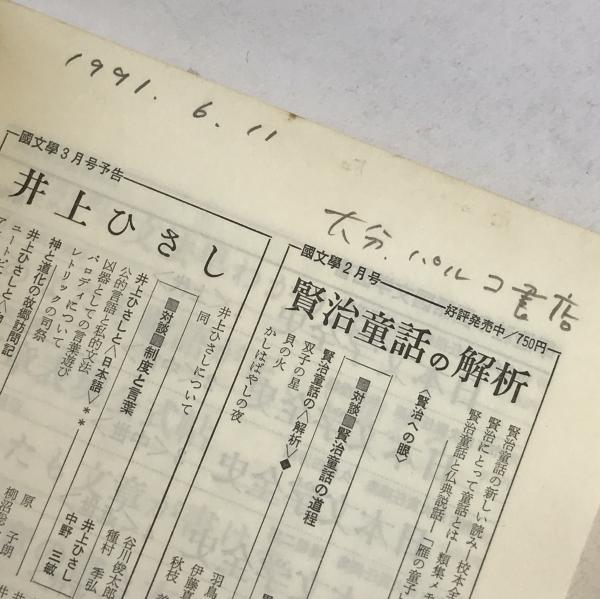 1991. 6. 11
大分. パルコ書店
國文學2月号
好評発売中/750円
賢治童話の解析
〈賢治への眼〉
賢治童話の新しい読み
賢治にとって童話とは
賢治童話と仏典説話
■対談■賢治童話の道程
賢治童話の〈解析〉◆
双子の星
貝の火
かしはばやしの夜
國文學3月号予告
井上ひさし
井上ひさしについて
同
■対談■制度と言葉
井上ひさし
中野 三敏
井上ひさしと〈日本語〉**
公的言語と私的文法
凶器としての言葉遊び
パロディについて
レトリックの司祭
神と道化の故郷訪問記
谷川俊太郎
種村 季弘
原 子朗